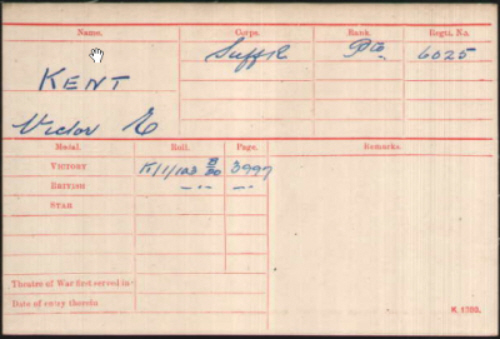 Name. Corps. Rank. Regtl. No.
KENT Suff R Pte 6025
Victor E
Medal. Roll. Page. Remarks.
VICTORY K/1/103 B 3997
BRITISH -"- -"-
STAR
Theatre of War first served in
Date of entry therein
K. 1380.